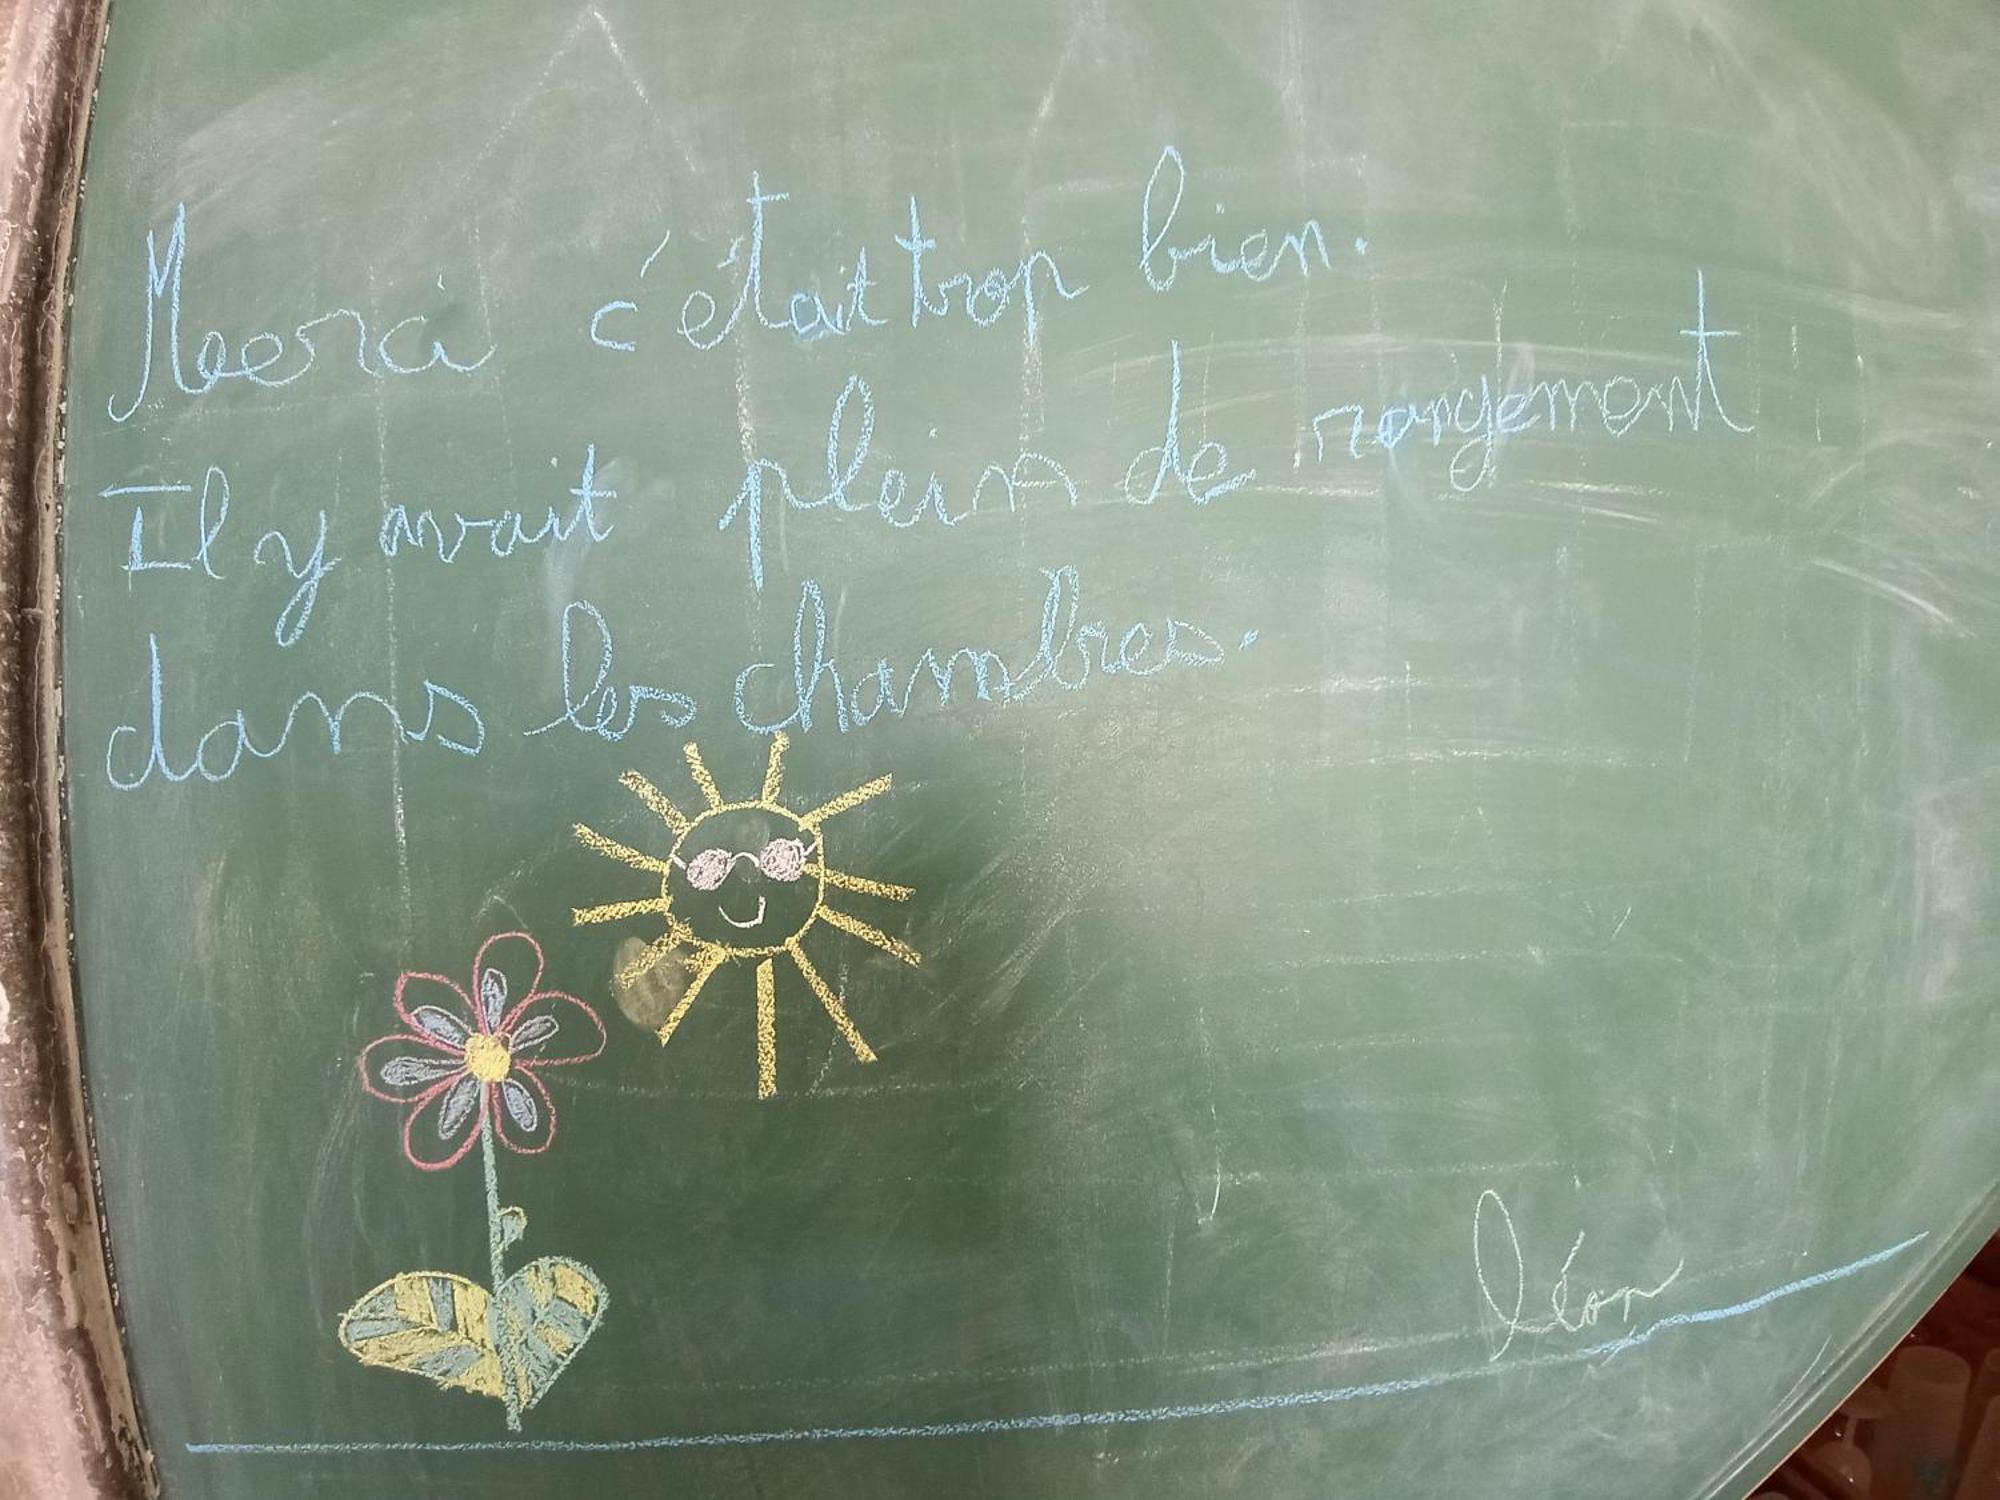 Merci c'était trop bien.
Il y avait plein de rangement
dans les chambres.
léon